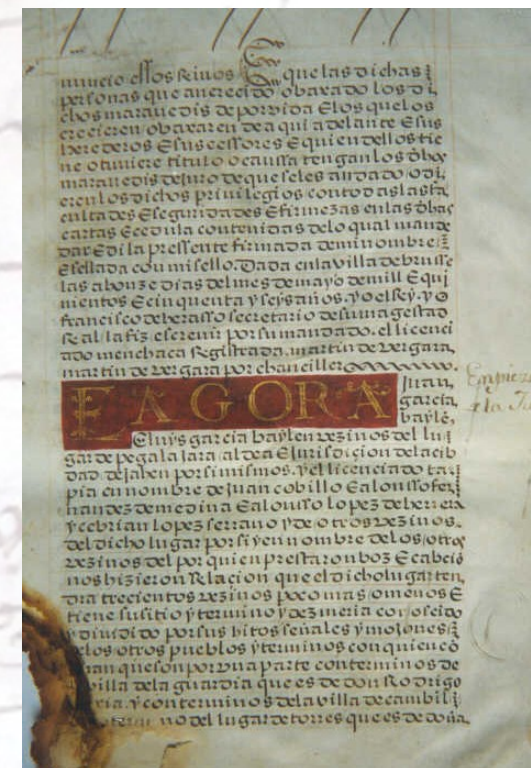 nuncio estos Reinos E que las dichas
personas que an crecido o baxado los di
chos maravedis de por vida E los que los
crecieren o baxaren de aqui adelante E sus
herederos E sus cessores E quien dellos tie
ne o tuviere titulo o caussa tengan los dhos
maravedis de juro de que se les an dado o di
eren los dichos privilegios con todas las fa
cultades E seguridades E firmezas en las dhas
cartas E cedula contenidas de lo qual mande
dar E di la pressente firmada de mi nombre
E sellada con mi sello. Dada en la villa de brusse
las a honze dias del mes de mayo de mill E qui
nientos E cinquenta y seys años. yo el Rey. yo
francisco de herasso secretario de su magestad
Real la fiz escrevir por su mandado. el licenci
ado menchaca Registrada. martin de vergara
martin de vergara por chanciller
E AGORA Juan
garcia
bayle,
E luys garcia baylen vezinos del lu
gar de pegalajara aldea E jurisdicion de la cib
dad de jahen por si mismos. y el licenciado ta
pia en nombre de juan cobillo E alonsso fer
nandez de medina E alonsso lopez de herrera
y cebrian lopez serrano y de otros vezinos.
del dicho lugar por si y en nombre de los otros
vezinos del por quien prestaron boz E caucio
nos hizieron Relacion que el dicho lugar ten
dra trecientos vezinos poco mas o menos E
tiene su sitio y termino y dezmeria conoscido
y dividido por sus hitos señales y mojones
de los otros pueblos y terminos con quien co
que son por una parte con terminos de
villa de la guardia que es de don Rodrigo
y con terminos de la villa de cambil
no del lugar de torres que es de doña
Enpieza